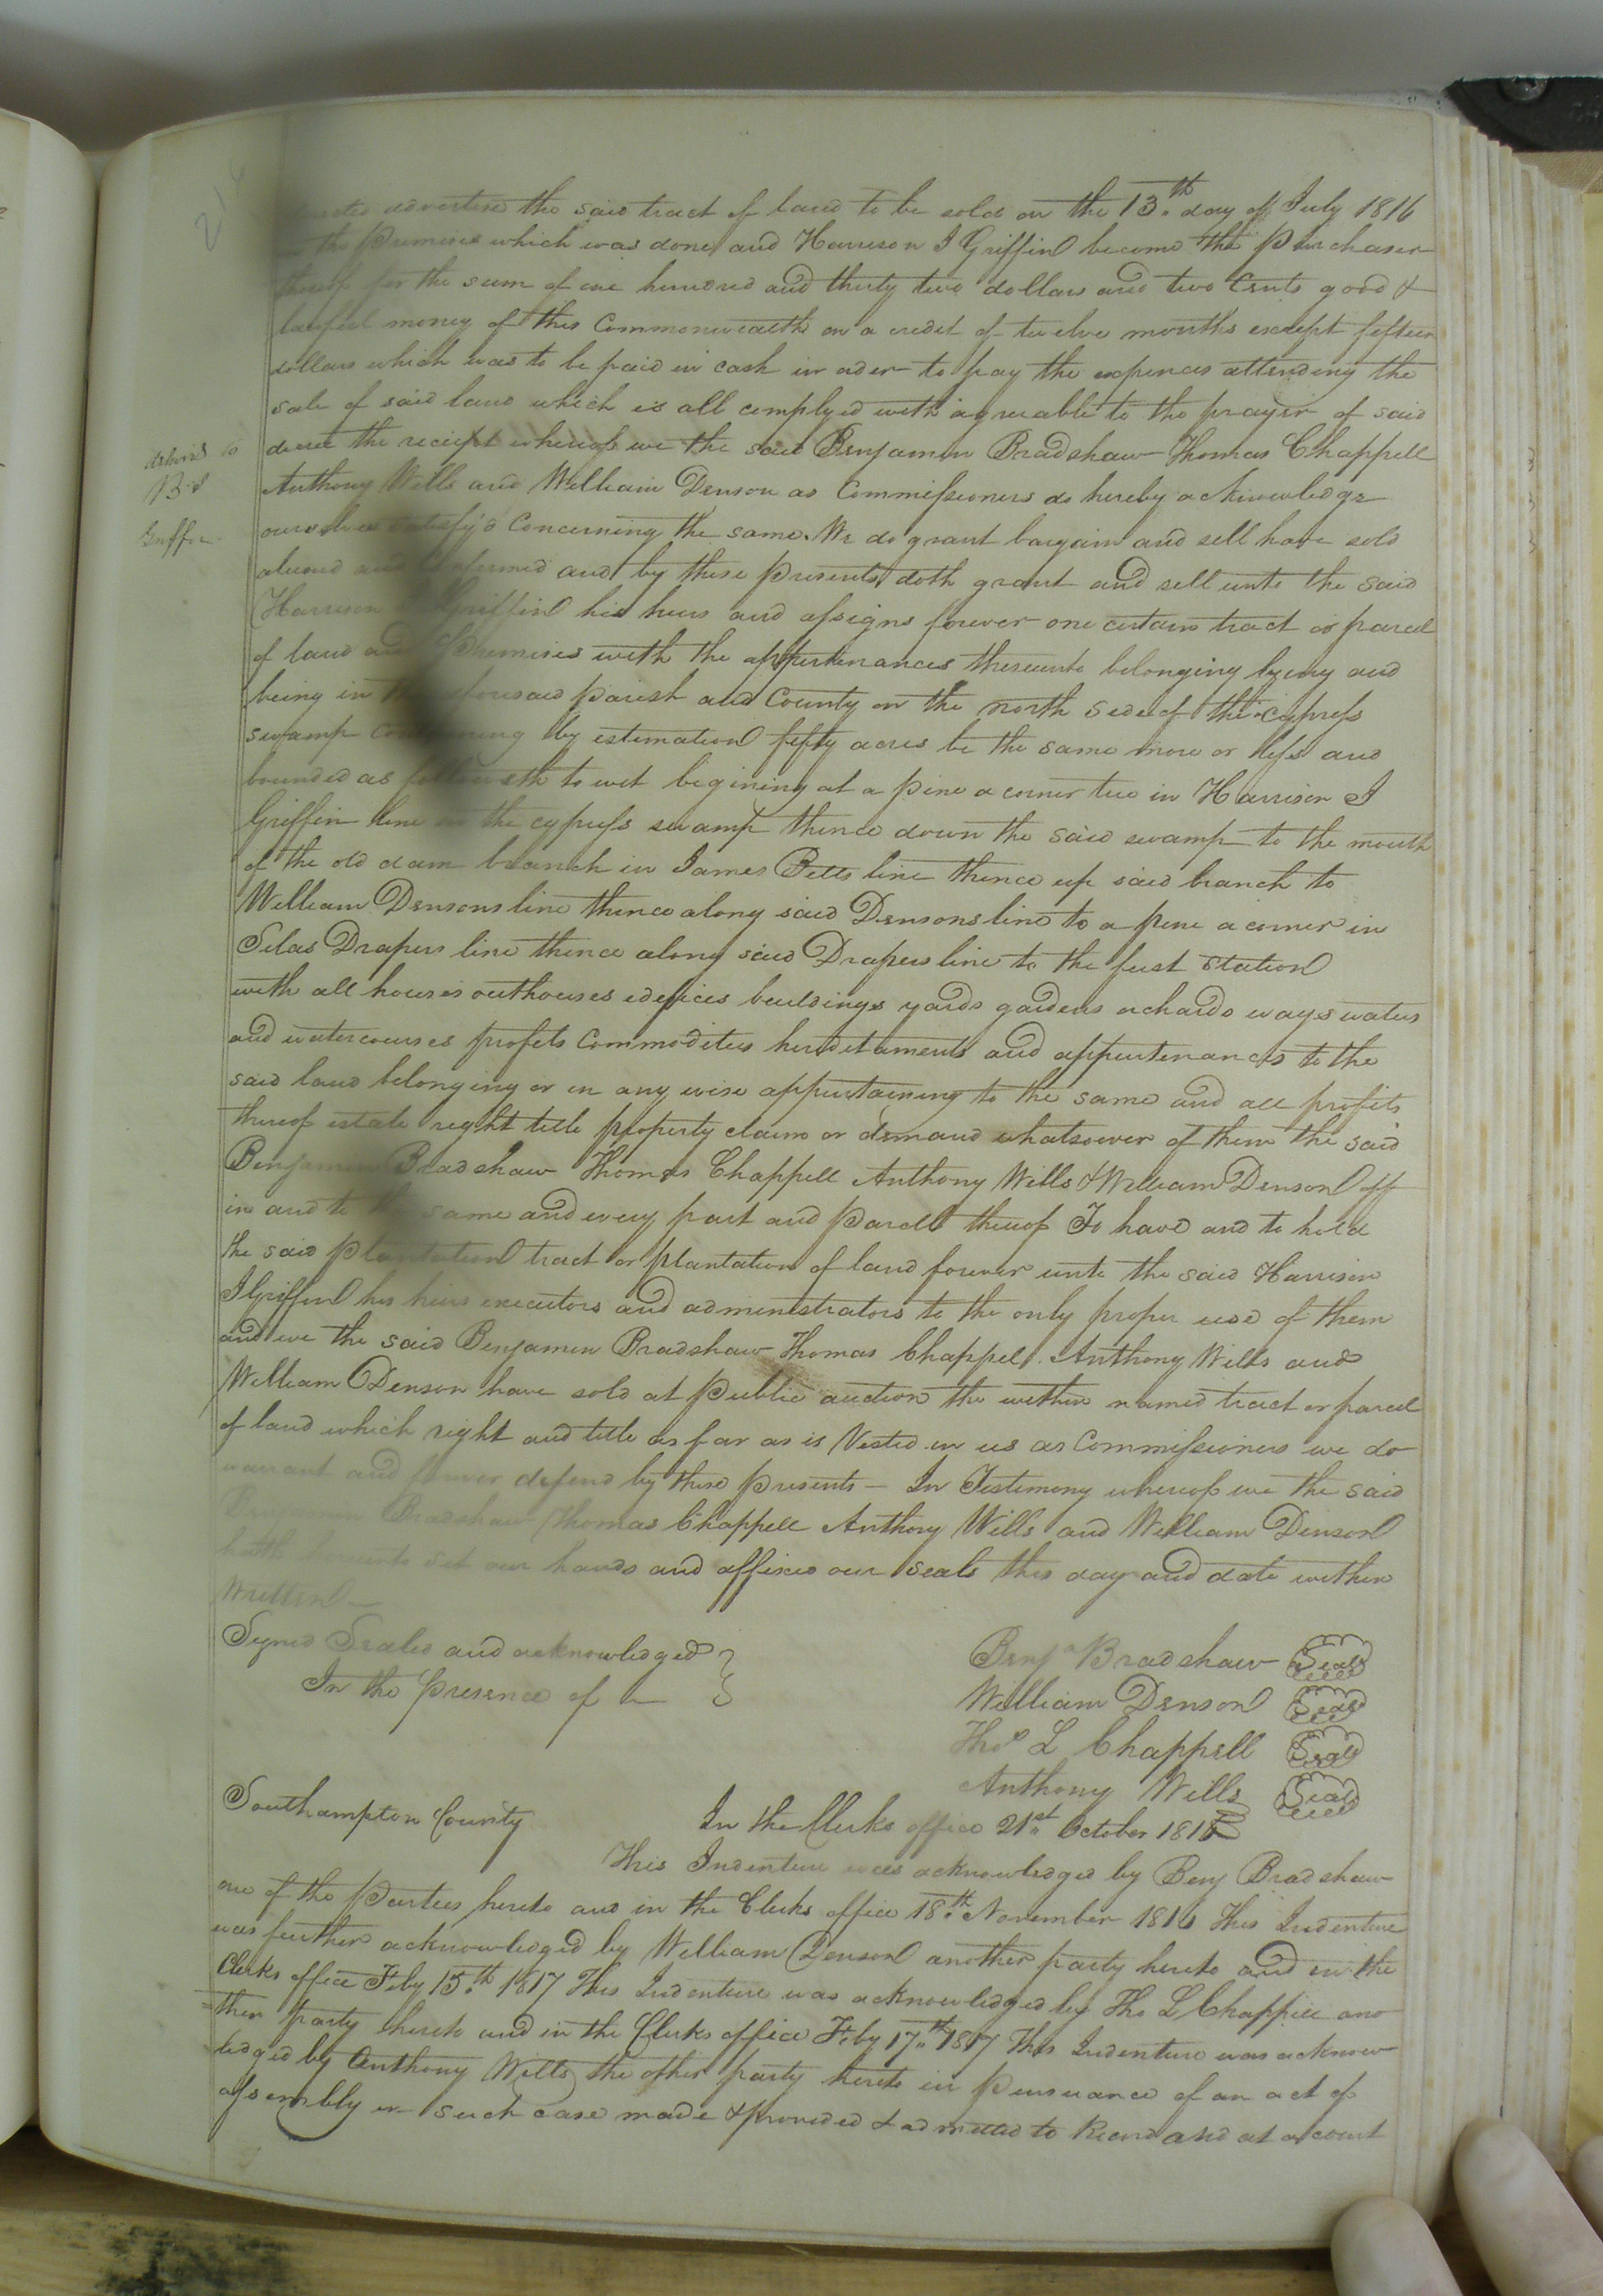 advertise the said tract of land to be sold on the 13th day of July 1816
the Premises which was done and Harrison J Griffin become the Purchaser
thereof for the sum of one hundred and thirty two dollars and two Cents good &
lawful money of this Commonwealth on a credit of twelve months except fifteen
dollars which was to be paid in cash in oder to pay the expences attending the
sale of said land which is all complyed with agreeable to the prayer of said
decree the receipt whereof we the said Benjamin Bradshaw Thomas Chappell
Anthony Wills and William Denson as Commissioners do hereby acknowledge
ourselves satisfy'd Concerning the same. We do grant bargain and sell have sold
and by these presents doth grant and sell unto the said
Harrison Griffin his heirs and assigns forever one certain tract or parcel
of land and Premises with the appurtenances thereunto belonging lying and
being in the aforesaid Parish and County on the north side of the cypress
swamp Containing by estimation fifty acres be the same more or less and
bounded as followeth to wit begining at a pine a corner tree in Harrison J
Griffin line the cypress swamp thence down the said swamp to the mouth
of the old dam branch in James Betts line thence up said branch to
William Densons line thence along said Densons line to a pine a corner in
Silas Drapers line thence along said Drapers line to the first station
with all houses outhouses edifices buildings yards gardens orchards ways waters
and watercourses profits Commodities hereditaments and appurtenances to the
said land belonging or in any wise appertaining to the same and all profits
thereof estate right title property claim or demand whatsoever of them the said
Benjamin Bradshaw Thomas Chappell Anthony Wills & William Denson off
in and to the same and every part and Parcell thereof To have and to hold
the said Plantation tract or plantation of land forever unto the said Harrison
J Griffin his heirs executors and administrators to the only proper use of them
and we the said Benjamin Bradshaw Thomas Chappel. Anthony Wills and
William Denson have sold at Public auction the within named tract or parcel
of land which right and title as far as is Vested in us as Commissioners we do
warrant and forever defend by these presents — In Testimony whereof we the said
Benjamin Bradshaw Thomas Chappell Anthony Wills and William Denson
hath hereunto set our hands and affixed our seals this day and date within
Written —
Signed Sealed and acknowledged }
In the Presence of —
Benj Bradshaw Seal
William Denson Seal
Thos L Chappell Seal
Anthony Wills Seal
Southampton County In the Clerks office 21st October 1816
This Indenture was acknowledged by Benj Bradshaw
one of the Parties hereto and in the Clerks office 18th November 1816 This Indenture
was further acknowledged by William Denson another party hereto and in the
Clerks office Feby 15th 1817 This Indenture was acknowledged by Tho L Chappell ano
ther party hereto and in the Clerks office Feby 17th 1817 This Indenture was acknow
ledged by Anthony Wills the other party hereto in Pursuance of an act of
assembly in such case made & provided & admitted to Record and at a court